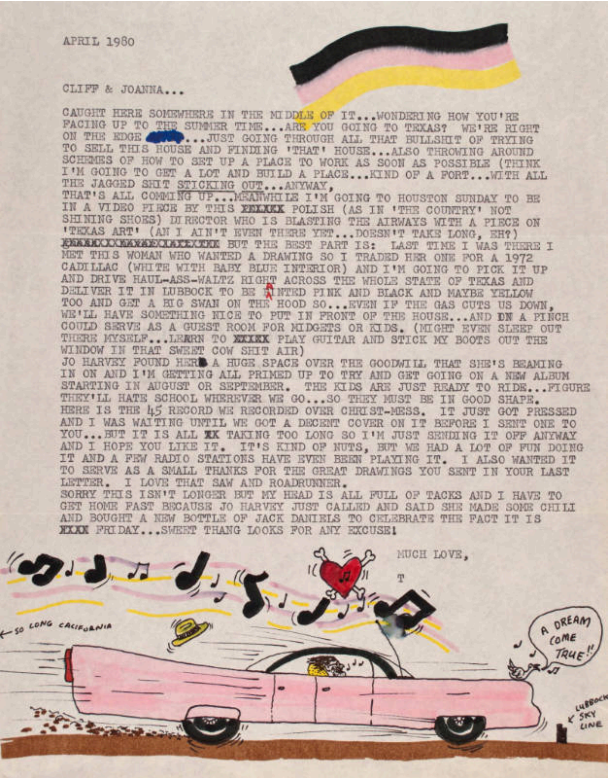 APRIL 1980
CLIFF & JOANNA...
CAUGHT HERE SOMEWHERE IN THE MIDDLE OF IT...WONDERING HOW YOU'RE
FACING UP TO THE SUMMER TIME...ARE YOU GOING TO TEXAS? WE'RE RIGHT
ON THE EDGE ...JUST GOING THROUGH ALL THAT BULLSHIT OF TRYING
TO SELL THIS HOUSE AND FINDING 'THAT' HOUSE...ALSO THROWING AROUND
SCHEMES OF HOW TO SET UP A PLACE TO WORK AS SOON AS POSSIBLE (THINK
I'M GOING TO GET A LOT AND BUILD A PLACE...KIND OF A FORT...WITH ALL
THE JAGGED SHIT STICKING OUT...ANYWAY,
THAT'S ALL COMMING UP...MEANWHILE I'M GOING TO HOUSTON SUNDAY TO BE
IN A VIDEO PIECE BY THIS POLISH (AS IN 'THE COUNTRY' NOT
SHINING SHOES) DIRECTOR WHO IS BLASTING THE AIRWAYS WITH A PIECE ON
'TEXAS ART' (AN I AIN'T EVEN THERE YET...DOESN'T TAKE LONG, EH?)
BUT THE BEST PART IS: LAST TIME I WAS THERE I
MET THIS WOMAN WHO WANTED A DRAWING SO I TRADED HER ONE FOR A 1972
CADILLAC (WHITE WITH BABY BLUE INTERIOR) AND I'M GOING TO PICK IT UP
AND DRIVE HAUL-ASS-WALTZ RIGHT ACROSS THE WHOLE STATE OF TEXAS AND
DELIVER IT IN LUBBOCK TO BE PAINTED PINK AND BLACK AND MAYBE YELLOW
TOO AND GET A BIG SWAN ON THE HOOD SO...EVEN IF THE GAS CUTS US DOWN,
WE'LL HAVE SOMETHING NICE TO PUT IN FRONT OF THE HOUSE...AND IN A PINCH
COULD SERVE AS A GUEST ROOM FOR MIDGETS OR KIDS. (MIGHT EVEN SLEEP OUT
THERE MYSELF...LEARN TO PLAY GUITAR AND STICK MY BOOTS OUT THE
WINDOW IN THAT SWEET COW SHIT AIR)
JO HARVEY FOUND HER A HUGE SPACE OVER THE GOODWILL THAT SHE'S BEAMING
IN ON AND I'M GETTING ALL PRIMED UP TO TRY AND GET GOING ON A NEW ALBUM
STARTING IN AUGUST OR SEPTEMBER. THE KIDS ARE JUST READY TO RIDE...FIGURE
THEY'LL HATE SCHOOL WHERNVER WE GO...SO THEY MUST BE IN GOOD SHAPE.
HERE IS THE 45 RECORD WE RECORDED OVER CHRIST-MESS. IT JUST GOT PRESSED
AND I WAS WAITING UNTIL WE GOT A DECENT COVER ON IT BEFORE I SENT ONE TO
YOU...BUT IT IS ALL TAKING TOO LONG SO I'M JUST SENDING IT OFF ANYWAY
AND I HOPE YOU LIKE IT. IT'S KIND OF NUTS, BUT WE HAD A LOT OF FUN DOING
IT AND A FEW RADIO STATIONS HAVE EVEN BEEN PLAYING IT. I ALSO WANTED IT
TO SERVE AS A SMALL THANKS FOR THE GREAT DRAWINGS YOU SENT IN YOUR LAST
LETTER. I LOVE THAT SAW AND ROADRUNNER.
SORRY THIS ISN'T LONGER BUT MY HEAD IS ALL FULL OF TACKS AND I HAVE TO
GET HOME FAST BECAUSE JO HARVEY JUST CALLED AND SAID SHE MADE SOME CHILI
AND BOUGHT A NEW BOTTLE OF JACK DANIELS TO CELEBRATE THE FACT IT IS
FRIDAY...SWEET THANG LOOKS FOR ANY EXCUSE!
MUCH LOVE,
T
← SO LONG CALIFORNIA
A DREAM
COME
TRUE!!
LUBBOCK
SKY
LINE